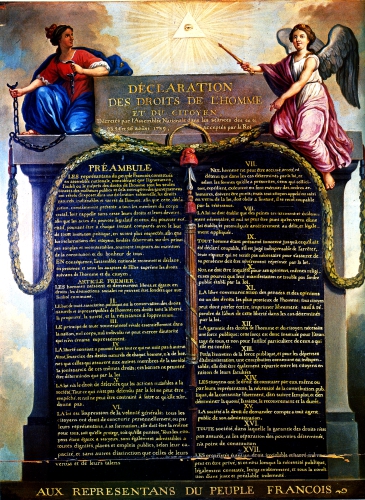 DÉCLARATION
DES DROITS DE L'HOMME
ET DU CITOYEN,
Décrétés par l'Assemblée Nationale dans les séances des 20, 21
23, 24 et 26 août 1789, acceptés par le Roi
PRÉAMBULE
LES représentans du peuple François, constitués
en assemblée nationale, considérant que l'ignorance,
l'oubli ou le mépris des droits de l'homme sont les seules
causes des malheurs publics et de la corruption des gouvernemens
ont résolu d'exposer dans une déclaration solemnelle, les droits
naturels, inaliénables et sacrés de l'homme; afin que cette décla-
ration, constamment présente à tous les membres du corps
social, leur rappelle sans cesse leurs droits et leurs devoirs;
afin que les actes du pouvoir législatif et ceux du pouvoir exé-
cutif, pouvant être à chaque instant comparés avec le but
de toute institution politique, en soient plus respectés; afin que
les réclamations des citoyens, fondées désormais sur des princi-
pes simples et incontestables, tournent toujours au maintien de
la constitution et du bonheur de tous.
EN conséquence, l'assemblée nationale reconnoît et déclare,
en présence et sous les auspices de l'Être suprême les droits
suivans de l'homme et du citoyen.
ARTICLE PREMIER.
LES hommes naissent et demeurent libres et égaux en
droits; les distinctions sociales ne peuvent être fondées que sur
l'utilité commune.
II.
LE but de toute association politique est la conservation des droits
naturels et imprescriptibles de l'homme; ces droits sont la liberté,
la propriété, la sureté, et la résistance à l'oppression.
III.
LE principe de toute souveraineté réside essentiellement dans
la nation, nul corps, nul individu ne peut exercer d'autorité
qui n'en émane expressément.
IV.
LA liberté consiste à pouvoir faire tout ce qui ne nuit pas à autrui
Ainsi, l'exercice des droits naturels de chaque homme, n'a de bor-
nes que celles qui assurent aux autres membres de la société
la jouissance de ces mêmes droits; ces bornes ne peuvent
être déterminées que par la loi
V.
LA loi n'a le droit de défendre que les actions nuisibles à la
société. Tout ce qui n'est pas défendu par la loi ne peut être
empêché, et nul ne peut être contraint à faire ce qu'elle n'or-
donne pas.
VI.
LA loi est l'expression de la volonté générale; tous les
citoyens ont droit de concourir personnellement, ou par
leurs représentans, à sa formation; elle doit être la même
pour tous, soit qu'elle protege, soit qu'elle punisse. Tous les cito-
yens étant égaux à ses yeux, sont également admissibles à
toutes dignités, places et emplois publics, selon leur ca-
pacité, et sans autres distinctions que celles de leurs
vertus et de leurs talens.
VII.
NUL homme ne peut être accusé, arrêté ni
détenu que dans les cas déterminés par la loi, et
selon les formes qu'elle a prescrites, ceux qui sollici-
tent, expédient, exécutent ou font exécuter des ordres ar-
bitraires, doivent être punis; mais tout citoyen appelé ou saisi
en vertu de la loi, doit obéir à l'instant, il se rend coupable
par la résistance.
VIII.
LA loi ne doit établir que des peines strictement et évidem-
ment nécessaires, et nul ne peut être puni qu'en vertu
d'une loi établie et promulguée antérieurement au délit,
et légalement appliquée.
IX.
TOUT homme étant présumé innocent jusqu'à ce qu'il ait
été déclaré coupable, s'il est jugé indispensable de l'arrêter,
toute rigueur qui ne seroit pas nécessaire pour s'assurer de
sa personne doit être sévèrement réprimée par la loi.
X.
NUL ne doit être inquiété pour ses opinions, mêmes religi-
euses pourvu que leur manifestation ne trouble pas l'ordre
public établi par la loi.
XI.
LA libre communication des pensées et des opinions est
un des droits les plus précieux de l'homme; tout citoyen
peut donc parler, écrire, imprimer librement; sauf à ré-
pondre de l'abus de cette liberté dans les cas déterminés
par la loi.
XII.
LA garantie des droits de l'homme et du citoyen nécessite
une force publique; cette force est donc instituée pour l'avan-
tage de tous, et non pour l'utilité particuliere de ceux à qui
elle est confiée.
XIII.
POUR l'entretien de la force publique, et pour les dépenses
d'administration, une contribution commune est indispen-
sable; elle doit être également répartie entre les citoyens en
raison de leurs facultés.
XIV.
LES citoyens ont le droit de constater par eux même ou
par leurs représentans, la nécessité de la contribution pub-
lique, de la consentir librement, d'en suivre l'emploi, et d'en
déterminer la quotité, l'assiette, le recouvrement et la durée.
XV.
LA société a le droit de demander compte à tout agent
public de son administration.
XVI.
TOUTE société, dans laquelle la garantie des droits n'est
pas assurée, ni la séparation des pouvoirs déterminée,
n'a point de constitution.
XVII.
LES propriétés étant un droit inviolable et sacré, nul ne
peut en être privé, si ce n'est lorsque la nécessité publique,
légalement constatée, l'exige évidemment, et sous la condi-
tion d'une juste et préalable indemnité.
AUX REPRESENTANS DU PEUPLE FRANCOIS